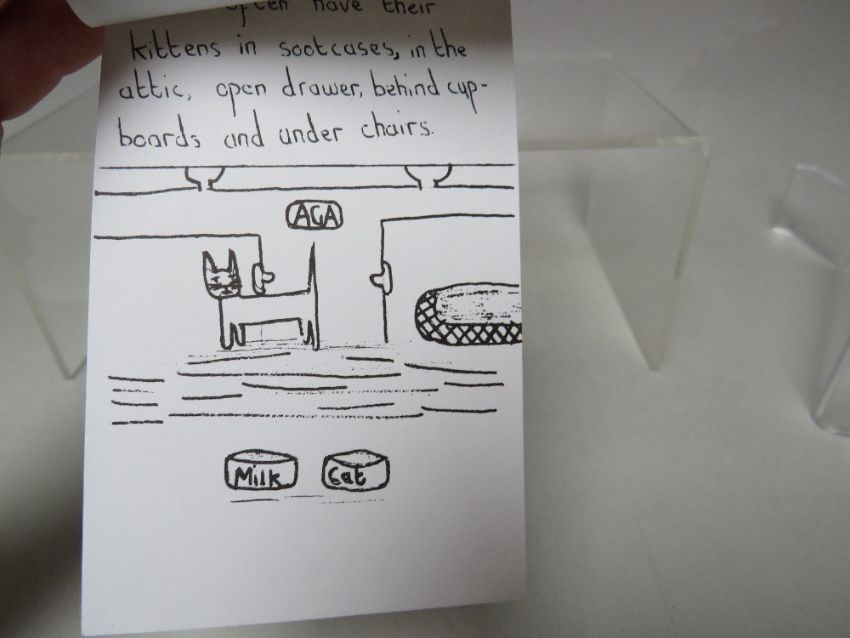 often have their
kittens in sootcases, in the
attic, open drawer, behind cup-
boards and under chairs.
AGA
Milk Cat